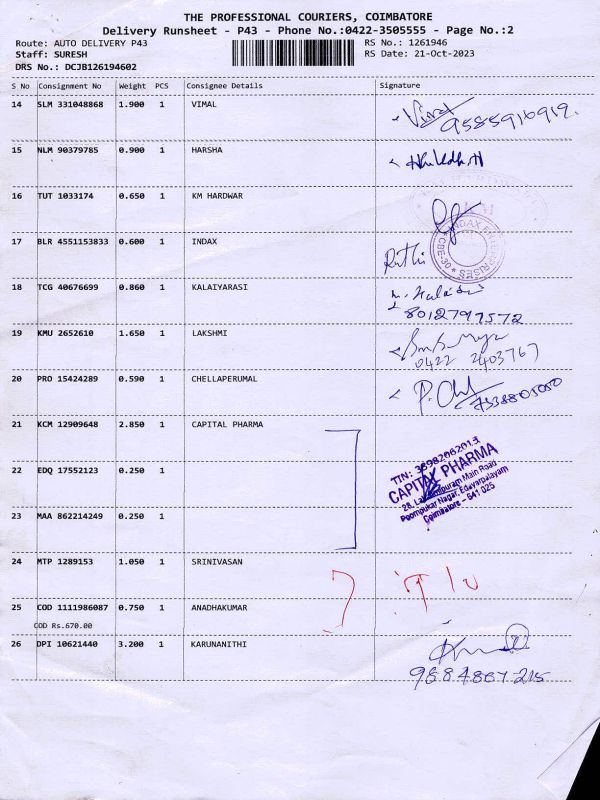 THE PROFESSIONAL COURIERS, COIMBATORE
Delivery Runsheet - P43 - Phone No.:0422-3505555 - Page No.:2
Route: AUTO DELIVERY P43 RS No.: 1261946
Staff: SURESH RS Date: 21-Oct-2023
DRS No.: DCJB126194602
S No Consignment No Weight PCS Consignee Details Signature
14 SLM 331048868 1.900 1 VIMAL
9585916919.
15 NLM 90379785 0.900 1 HARSHA
16 TUT 1033174 0.650 1 KM HARDWAR
17 BLR 4551153833 0.600 1 INDAX
INDAX ENTERPRISES
CBE-30
18 TCG 40676699 0.860 1 KALAIYARASI
8012797572
19 KMU 2652610 1.650 1 LAKSHMI
0422 2403767
20 PRO 15424289 0.590 1 CHELLAPERUMAL
7538805050
21 KCM 12909648 2.850 1 CAPITAL PHARMA
TIN: 33982062013
CAPITAL PHARMA
Main Road
Poompukar Nagar, Edayarpalayam
Coimbatore - 641 025
22 EDQ 17552123 0.250 1
23 MAA 862214249 0.250 1
24 MTP 1289153 1.050 1 SRINIVASAN
25 COD 1111986087 0.750 1 ANADHAKUMAR
COD Rs.670.00
26 DPI 10621440 3.200 1 KARUNANITHI
9884887215